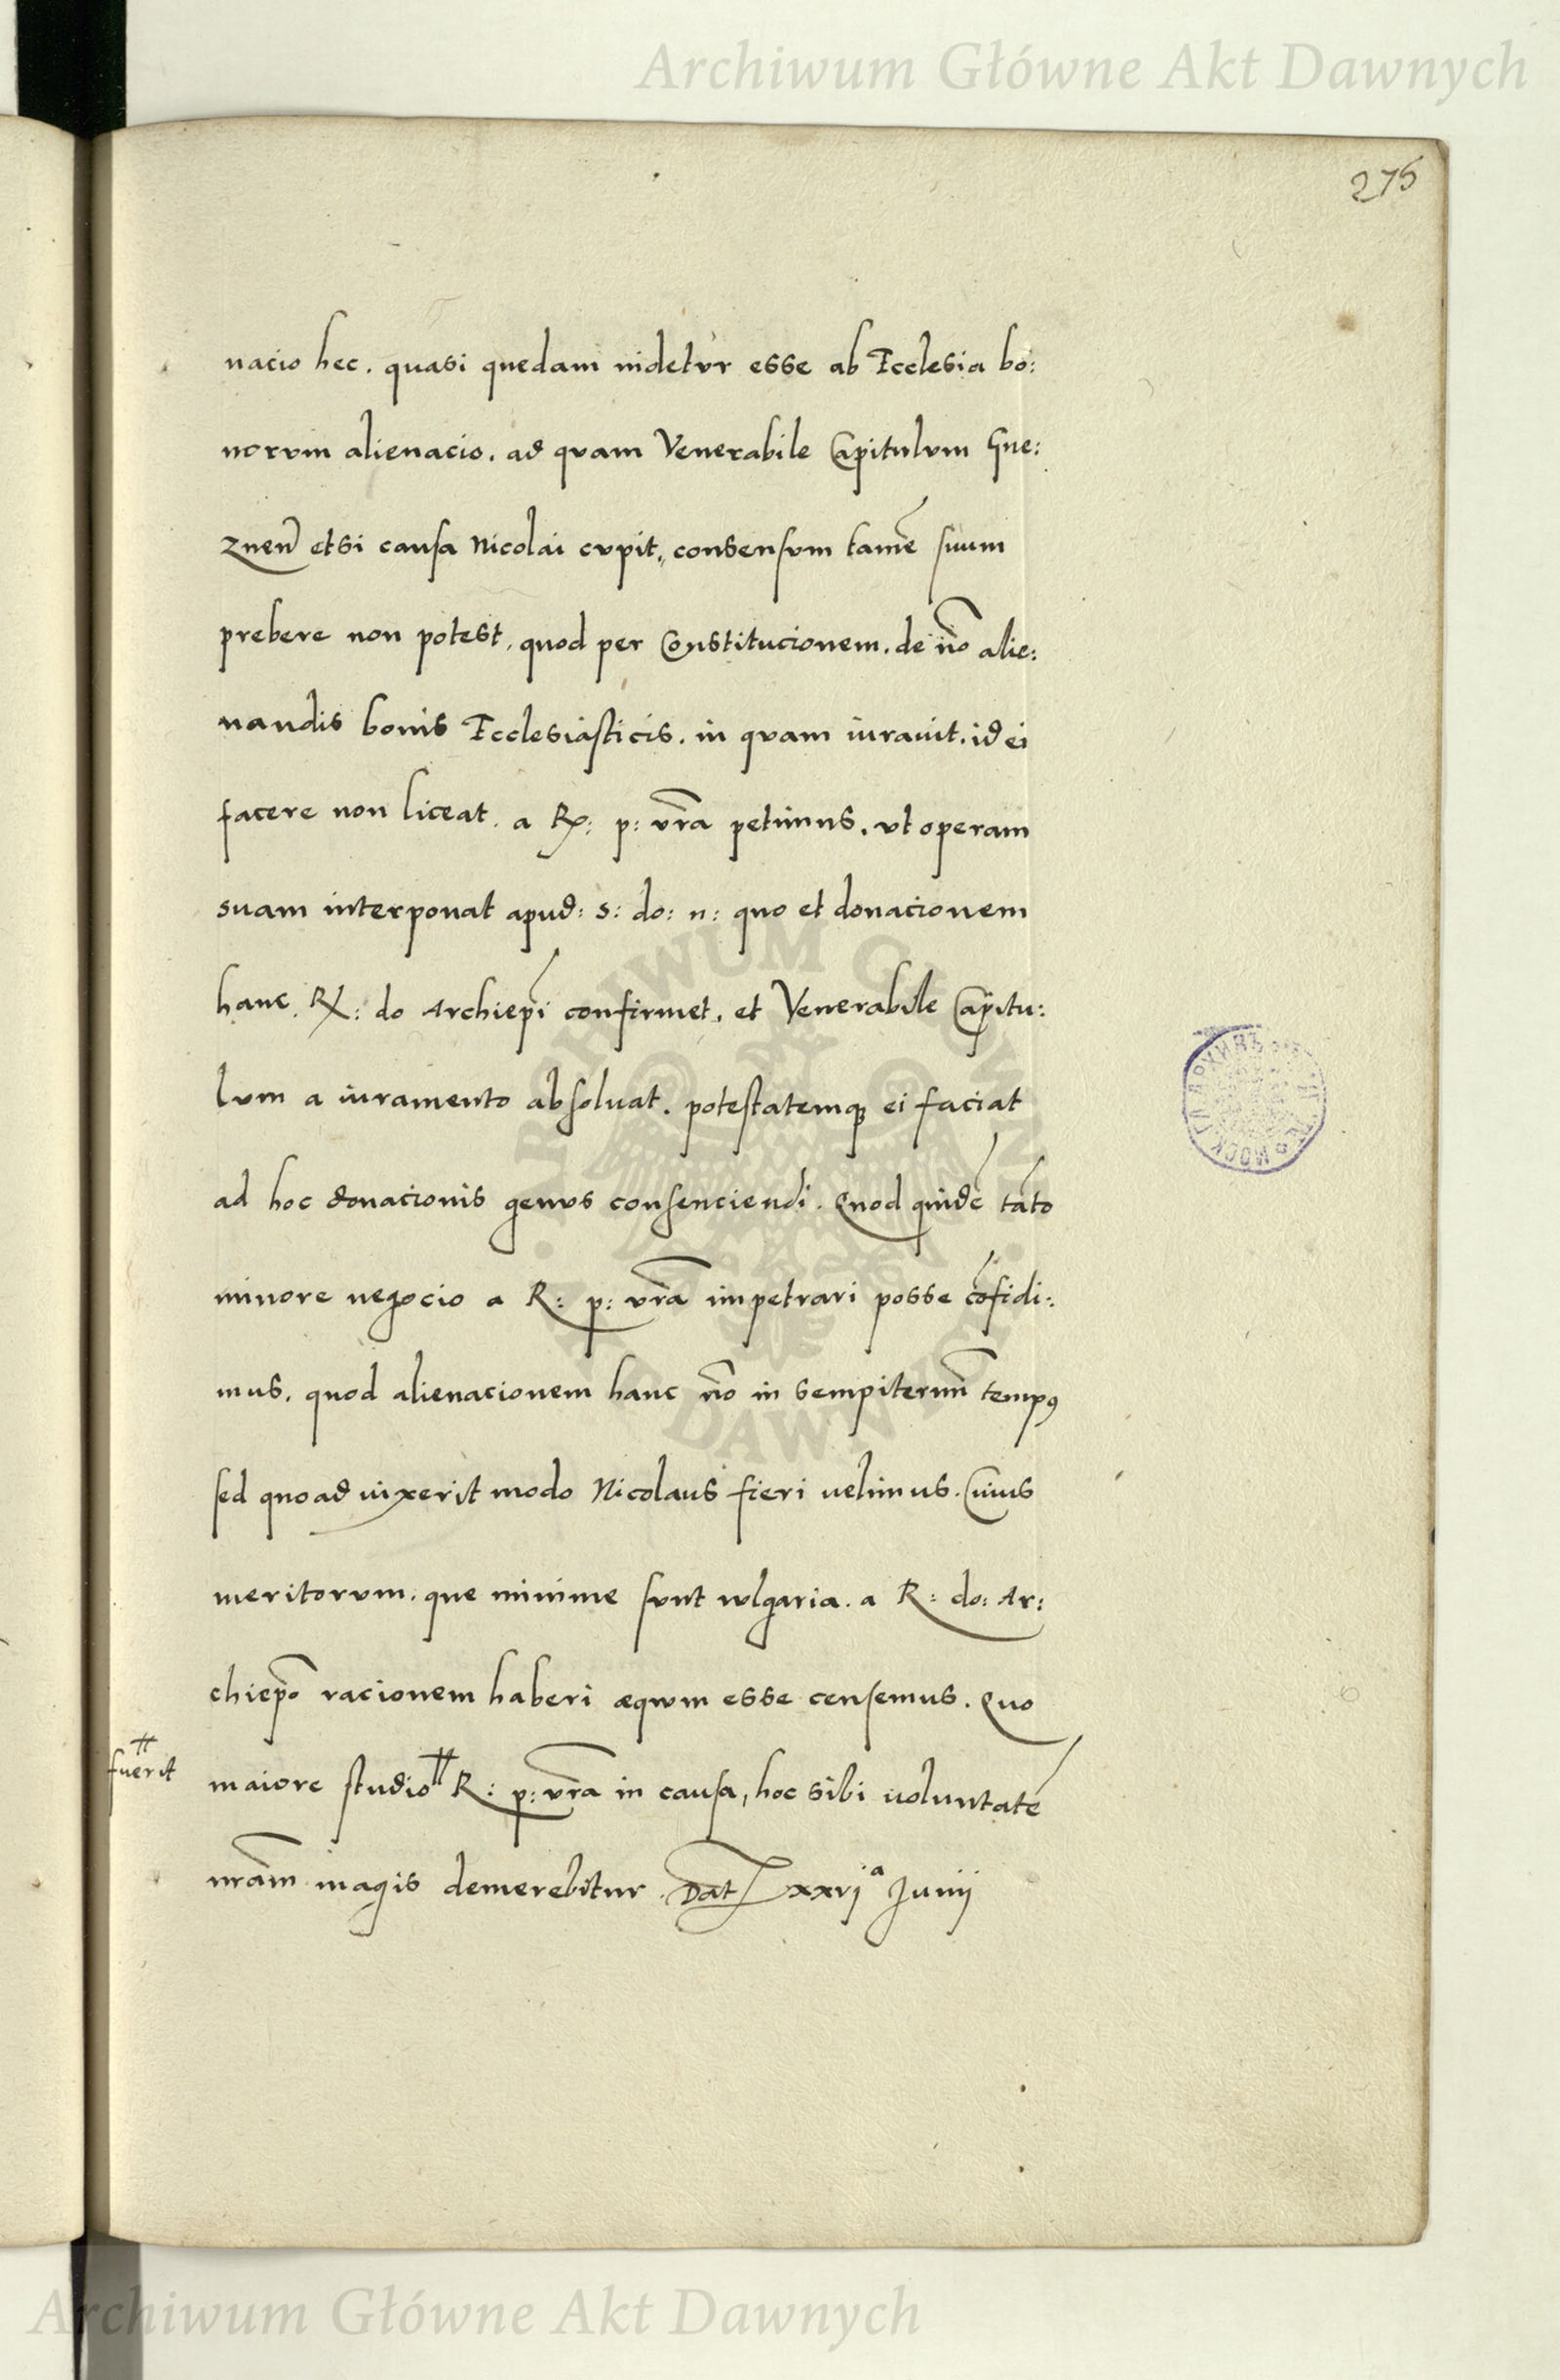 Archiwum Główne Akt Dawnych
275
nacio hec. quasi quedam uidetur esse ab Ecclesia bo:
norum alienacio. ad quam Venerabile Capitulum Gne:
znen̄ etsi causa Nicolai cupit, consensum tamē suum
prebere non potest, quod per Constitucionem. de nō alie:
nandis bonis Ecclesiasticis. in quam iurauit. id ei
facere non liceat. a R: p: vr̄a petimus. vt operam
suam interponat apud: s: do: n: quo et donacionem
hanc. R: do Archiepī confirmet. et Venerabile Capitu:
lum a iuramento absoluat. potestatemqꝫ ei faciat
ad hoc donacionis genus consenciendi. Quod quidē tāto
minore negocio a R: p: vr̄a impetrari posse cōfidi:
mus. quod alienacionem hanc nō in sempiternū tempꝯ
sed quoad uixerit modo Nicolaus fieri uelimus. Cuius
meritorum. que minime sunt uulgaria. a R: do: Ar:
chiep̄o racionem haberi æquum esse censemus. Quo
fuerit
maiore studio R: p: vr̄a in causa, hoc sibi uoluntatē
nr̄am magis demerebitur. Dat xxvjᵃ Junij
ARCHIWUM GŁÓWNE AKT DAWNYCH
Archiwum Główne Akt Dawnych